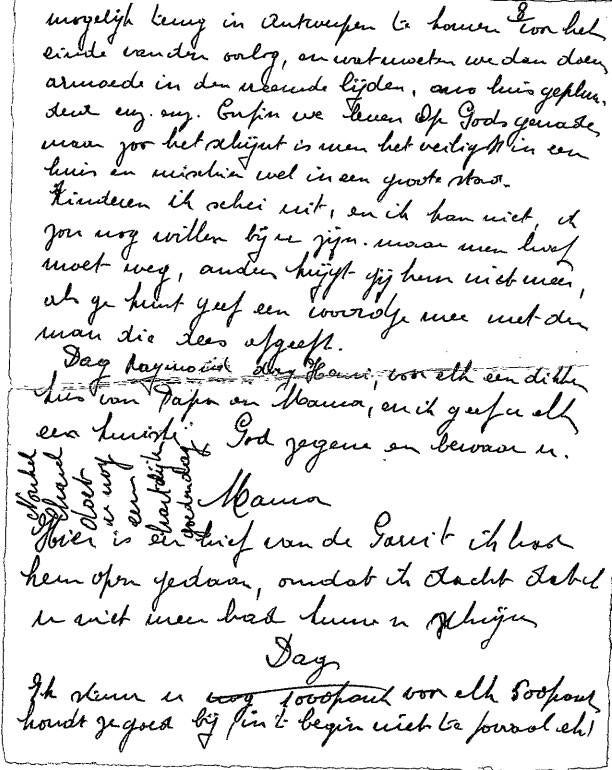 mogelijk terug in Antwerpen te komen voor het
einde van den oorlog, en wat moeten we dan doen
armoede in den vreemde lijden, ons huis geplun-
derd enz. enz. Enfin we leven op Gods genade
maar zoo het schijnt is men het veiligst in een
huis en misschien wel in een groote stad.
Kinderen ik schei uit, en ik kan niet, ik
zou nog willen bij u zijn. maar men brief
moet weg, anders krijgt gij hem niet meer,
als ge kunt geef een woordje mee met den
man die dees afgeeft.
Dag Raymond dag Henri, voor elk een dikken
kus van Papa en Mama, en ik geef u elk
een kruisje, God zegene en bewaar u.
Mama
Nonkel
doet
u nog
een
hartelijk
goedendag
Hier is een brief van de ik had
hem open gedaan, omdat ik dacht dat ik
u niet meer had kunnen schrijven
Dag
Ik steur u nog voor elk 500 frank
houdt ze goed bij in 't begin niet te